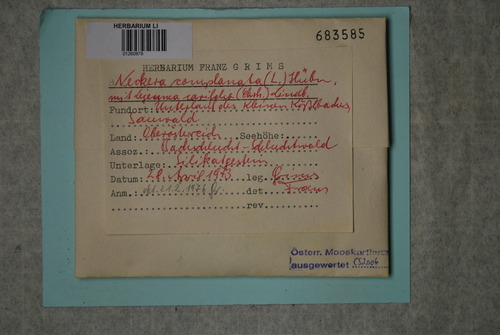 HERBARIUM LI
683585
HERBARIUM FRANZ GRIMS
Neckera complanata (L.) Hübn.
mit Lejeunea cavifolia (Ehrh.) Lindb.
Fundort: Unterlauf des kleinen Kößlbaches,
Sauwald
Land: Oberösterreich Seehöhe:
Assoz.: Bachschlucht-Schluchtwald
Unterlage: Silikatgestein
Datum: 28. April 1973 leg. Grims
Anm.: 1976 det. Grims
rev.
Österr. Mooskartierung
ausgewertet